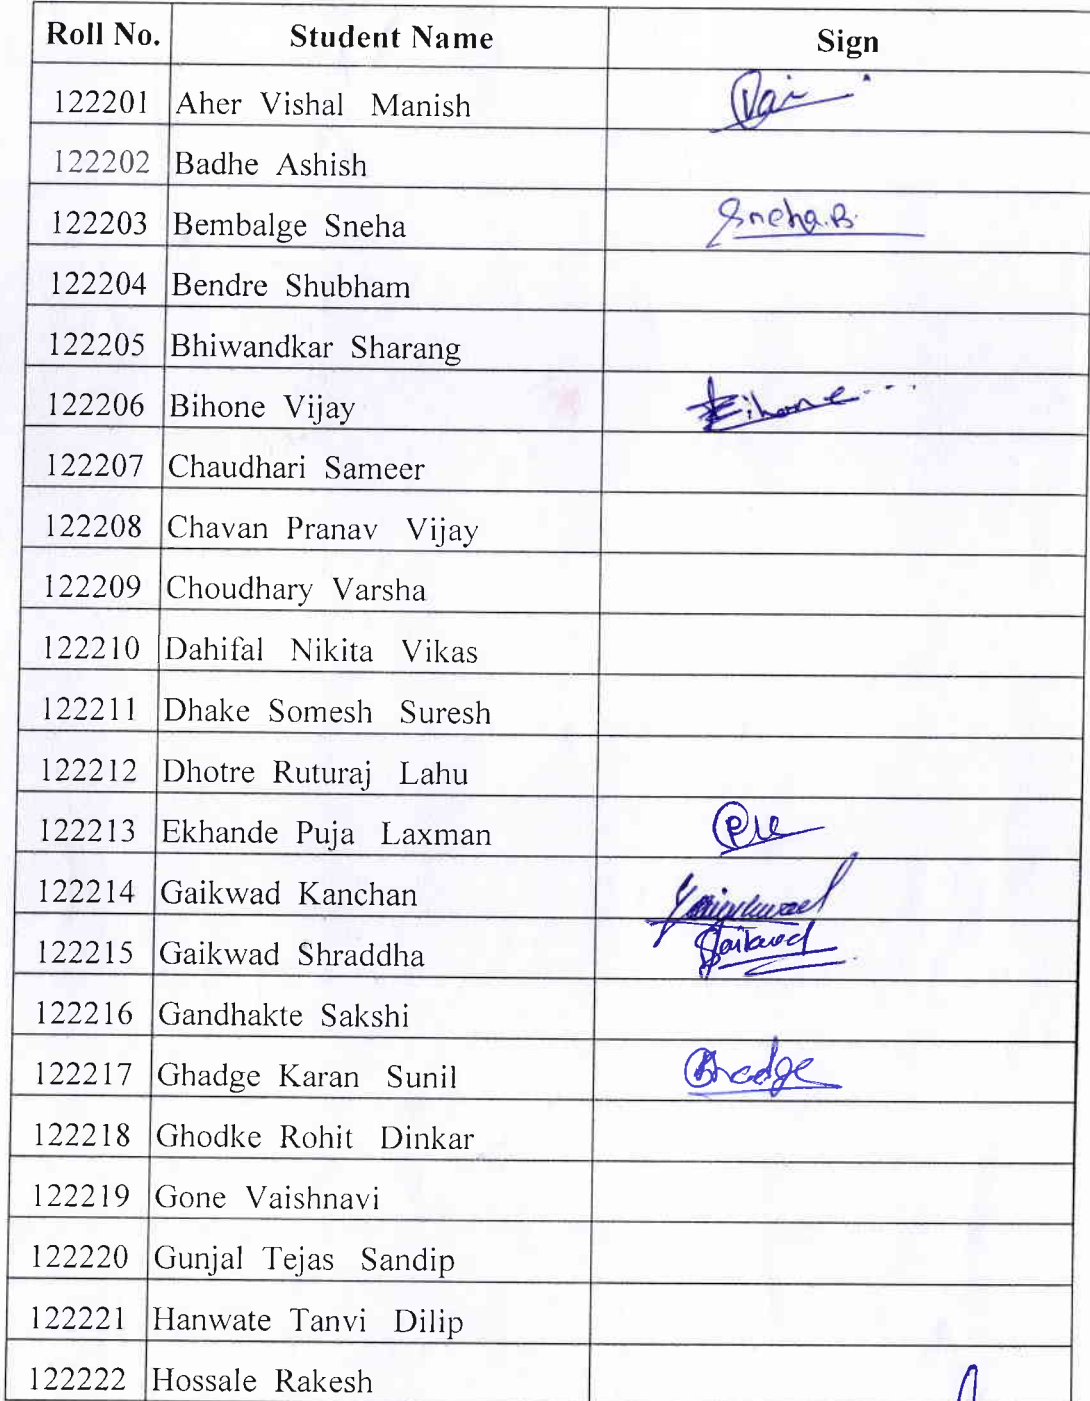 Roll No. Student Name Sign
122201 Aher Vishal Manish
122202 Badhe Ashish
122203 Bembalge Sneha Sneha.B.
122204 Bendre Shubham
122205 Bhiwandkar Sharang
122206 Bihone Vijay Bihone
122207 Chaudhari Sameer
122208 Chavan Pranav Vijay
122209 Choudhary Varsha
122210 Dahifal Nikita Vikas
122211 Dhake Somesh Suresh
122212 Dhotre Ruturaj Lahu
122213 Ekhande Puja Laxman
122214 Gaikwad Kanchan
122215 Gaikwad Shraddha Gaikwad
122216 Gandhakte Sakshi
122217 Ghadge Karan Sunil Ghadge
122218 Ghodke Rohit Dinkar
122219 Gone Vaishnavi
122220 Gunjal Tejas Sandip
122221 Hanwate Tanvi Dilip
122222 Hossale Rakesh